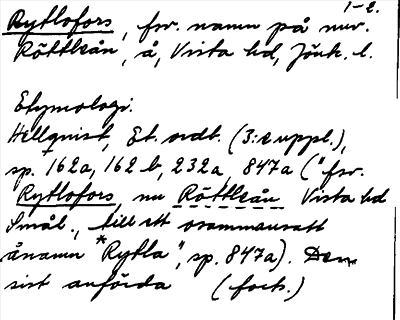 1-2.
Rytlofors, fsv. namn på nuv.
Röttleån, å, Vista hd, Jönk. l.
Etymologi.
Hellquist, Et. ordb. (3:e uppl.),
sp. 162a, 162b, 232a, 847a ("fsv.
Rytlofors, nu Röttleån Vista hd
Smål., till ett osammansatt
ånamn *Rytla", sp. 847a). Den
sist anförda (forts.)